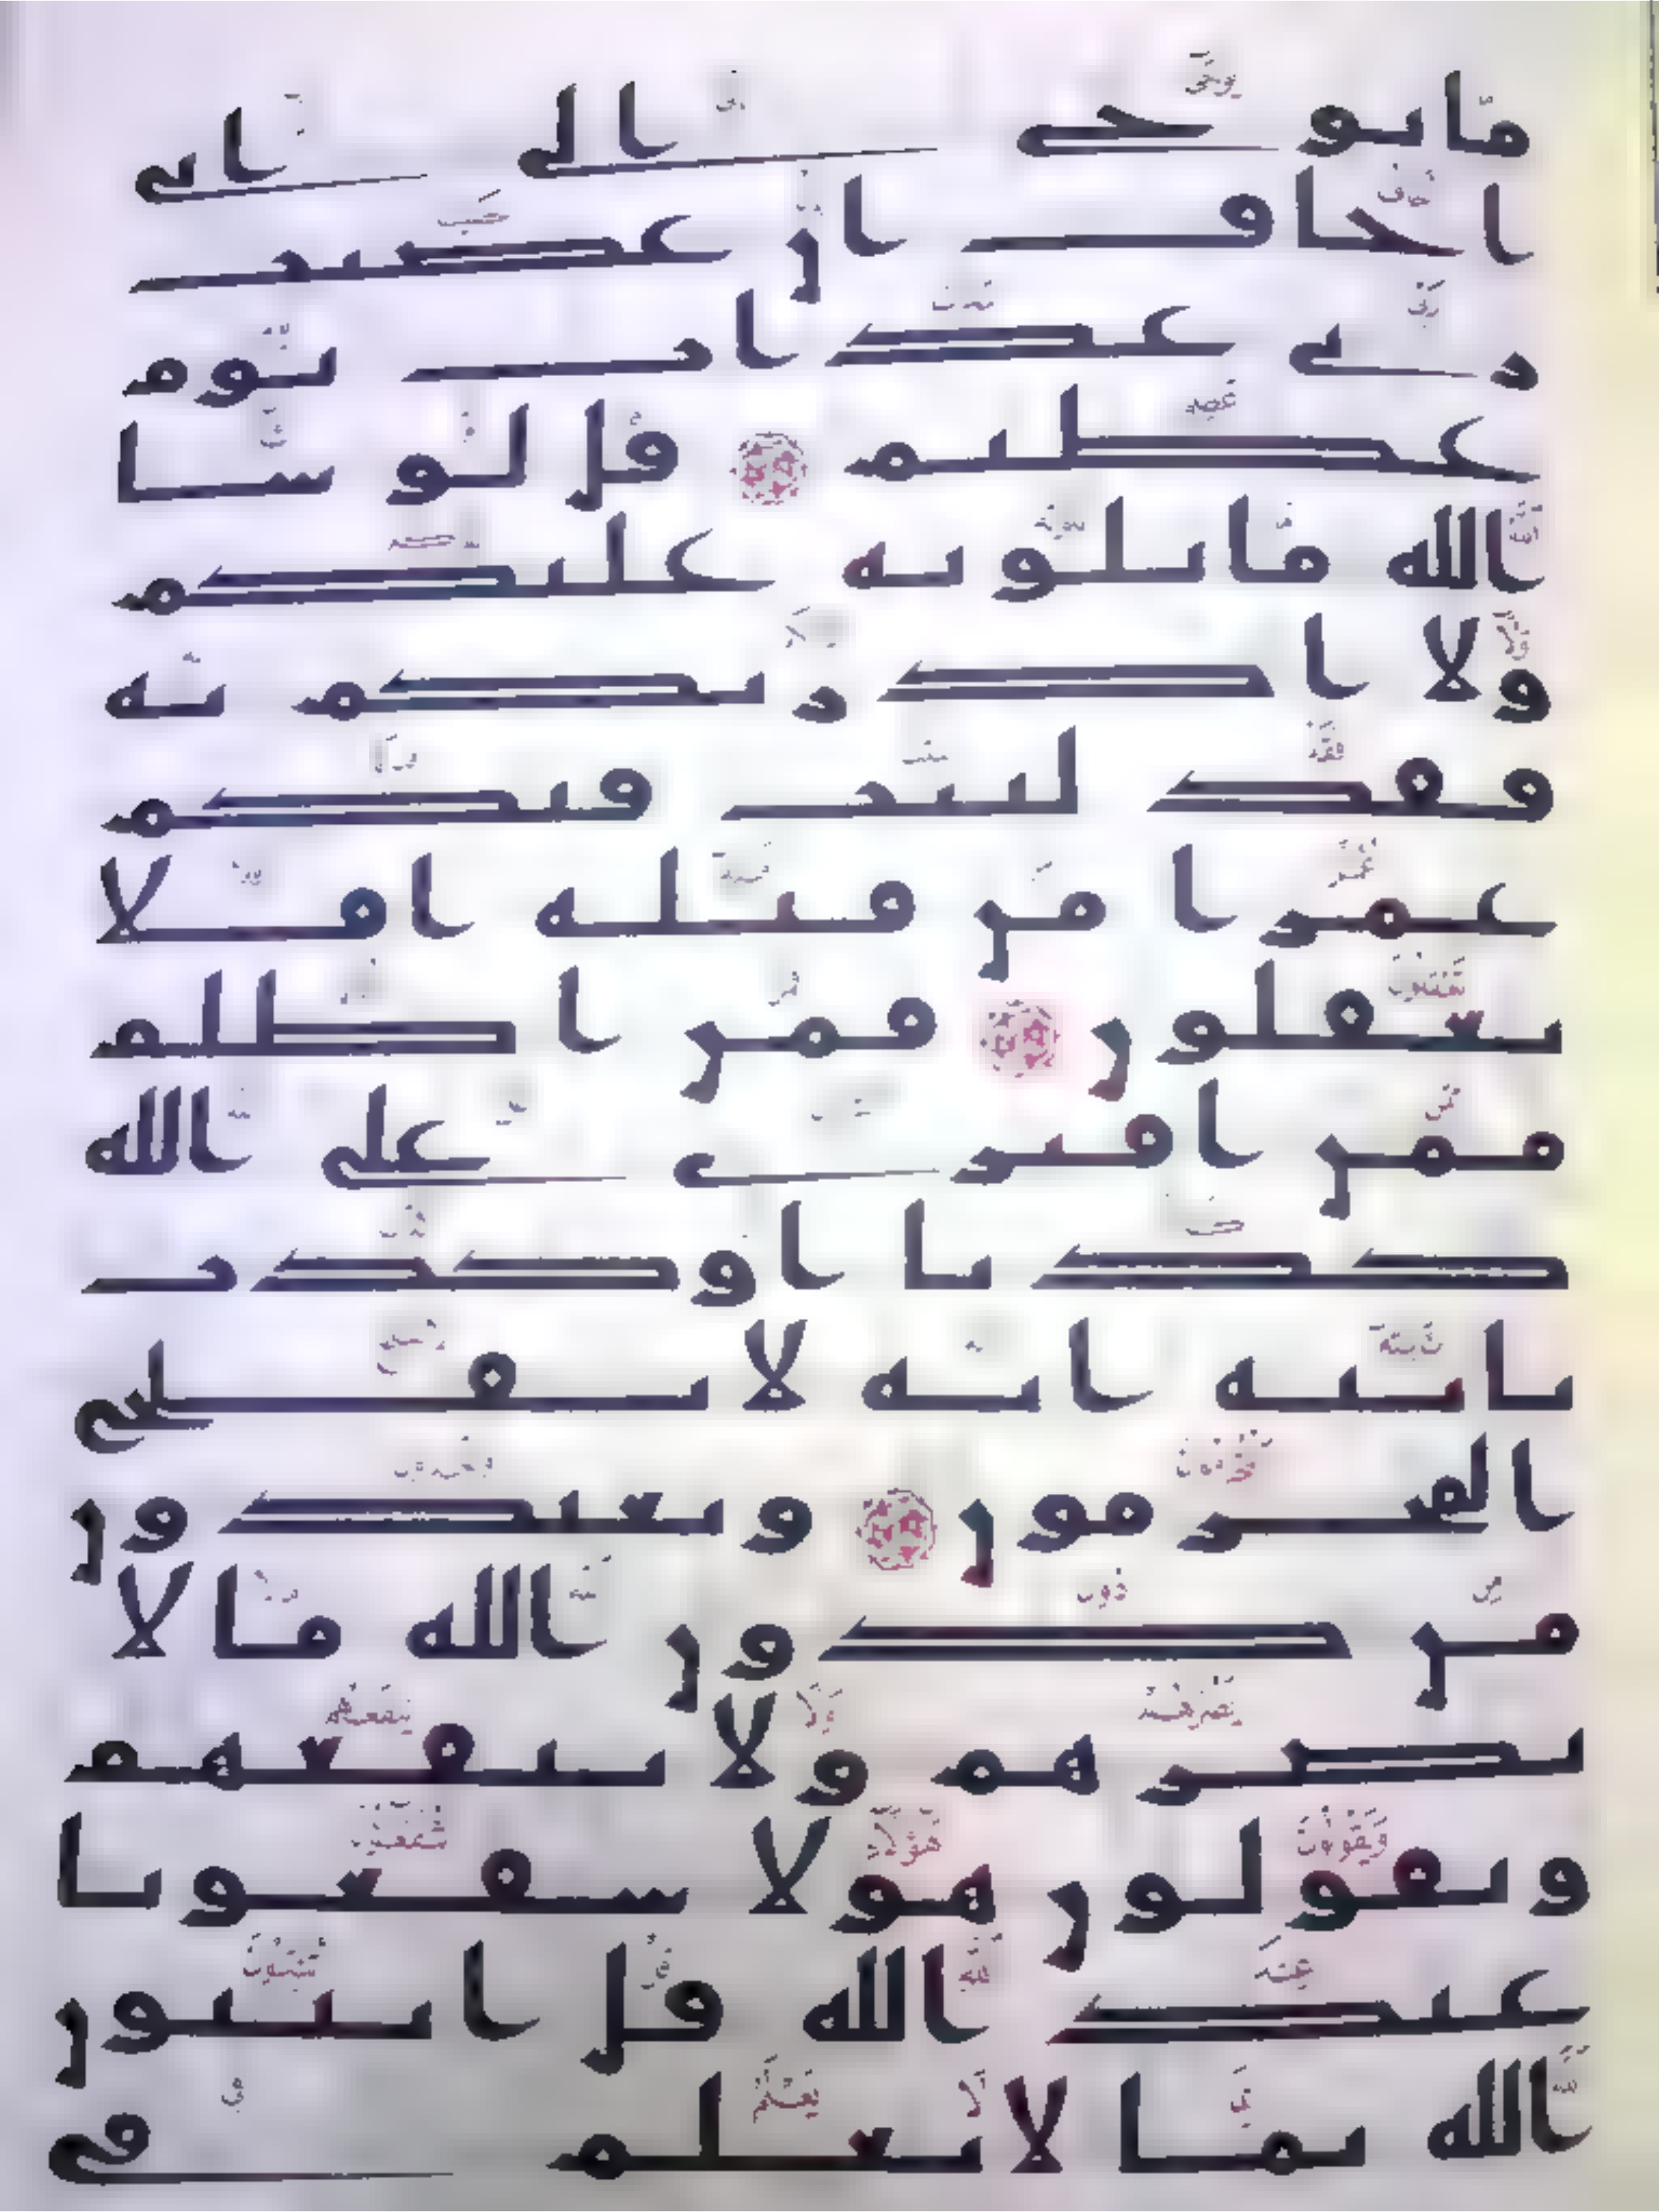 ما يوحى الي اني
اخاف ان عصيت
ربي عذاب يوم
عظيم قل لو شا
الله ما تلوته عليكم
ولا ادريكم به
فقد لبثت فيكم
عمرا من قبله افلا
تعقلون فمن اظلم
ممن افترى على الله
كذبا او كذب
بايته انه لا يفلح
المجرمون ويعبدون
من دون الله ما لا
يضرهم ولا ينفعهم
ويقولون هولا شفعونا
عند الله قل اتنبون
الله بما لا يعلم في